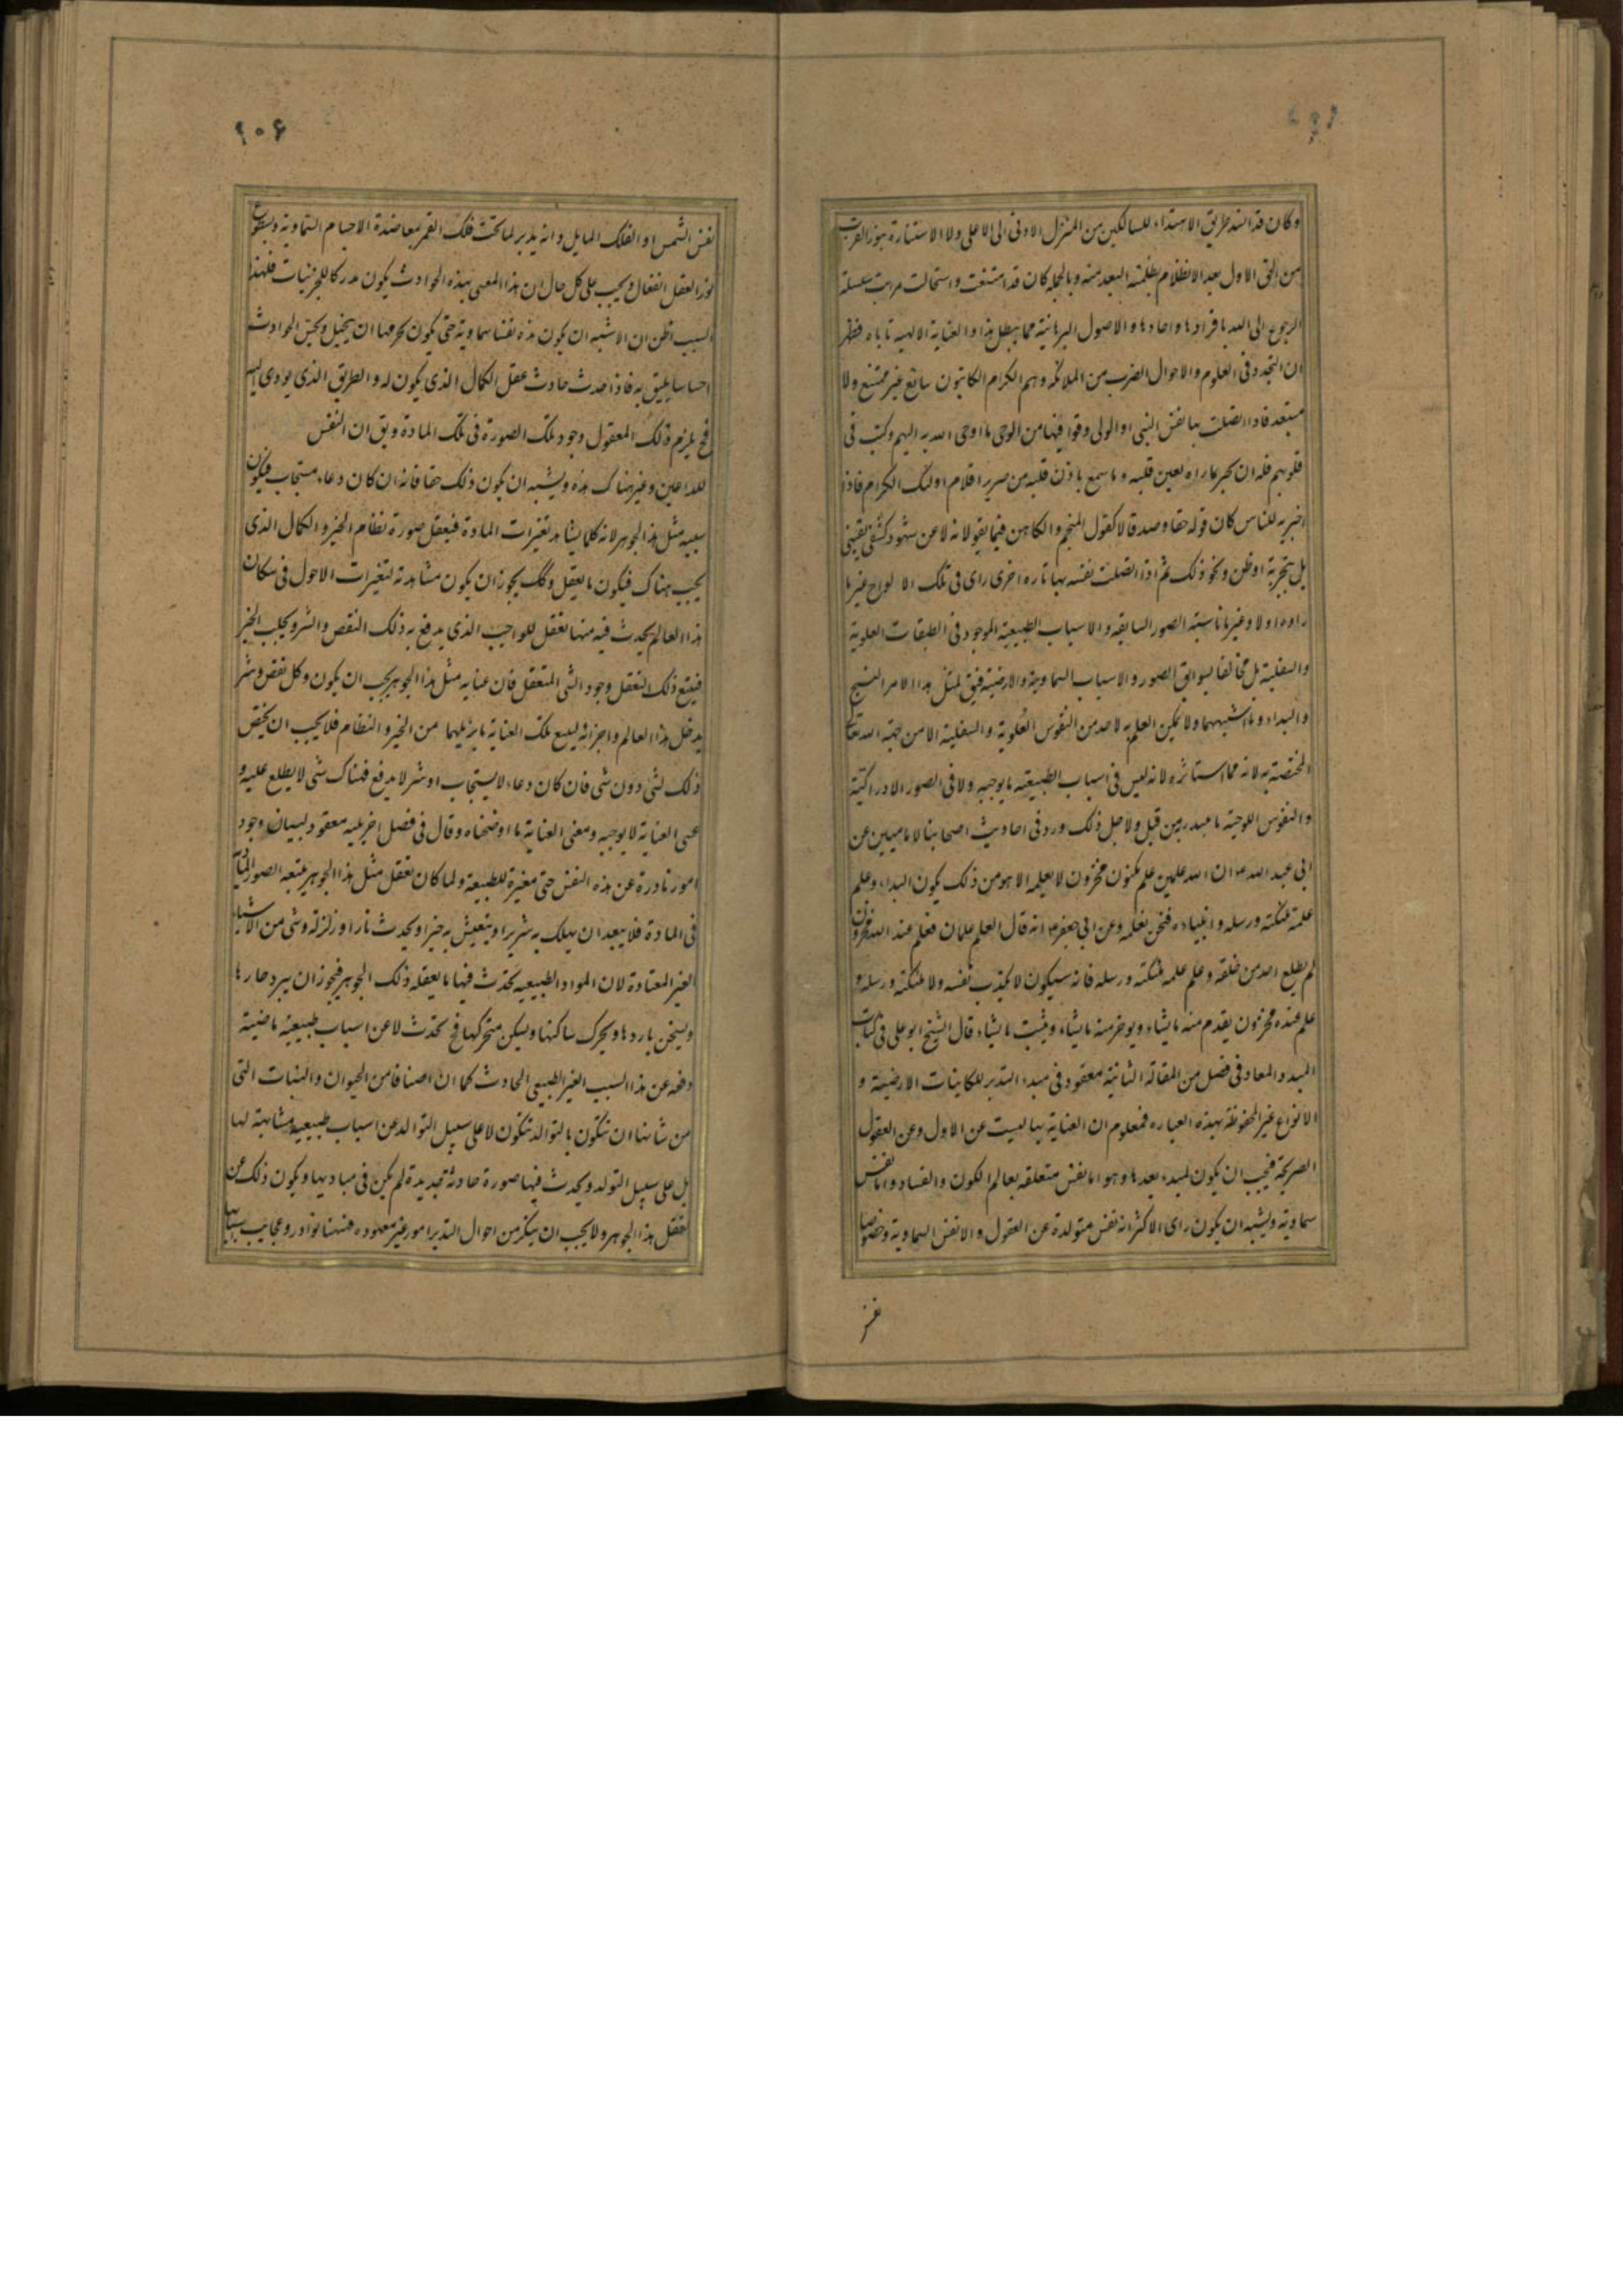 وكان قد انسد طريق الاهتداء للسالكين من المنزل الادنى الى الاعلى ولا الاستنارة بنور القرب
من الحق الاول بعد الانظلام بظلمة البعد منه وبالجملة كان قد امتنعت واستحالت مرتب سلسلة
الرجوع الى الله بافرادها واحادها والاصول البرهانية مما يبطل هذا والعناية الالهية تاباه فظهر
ان التجدد فى العلوم والاحوال لضرب من الملائكة وهم الكرام الكاتبون سائغ غير ممتنع ولا
مستبعد فاذا اتصلت بها نفس النبى او الولى وقرا فيها من الوحى ما اوحى الله به اليهم وكتب فى
قلوبهم فله ان يخبر عما راه بعين قلبه وما سمع باذن قلبه من صرير اقلام اولئك الكرام فاذا
اخبر به للناس كان قوله حقا وصدقا لا كقول المنجم والكاهن فيما يقولانه لا عن شهود كشفى يقينى
بل بتجربة او ظن ونحو ذلك ثم اذا اتصلت نفسه بها تارة اخرى راى فى تلك الالواح غير ما
راه اولا وغير ما ناسبته الصور السابقه والاسباب الطبيعية الموجود فى الطبقات العلوية
والسفلية بل مخالفا لسوابق الصور والاسباب السماوية والارضية فيق لمثل هذا الامر النسخ
والبداء وما اشبههما ولا يمكن العلم به لاحد من النفوس العلوية والسفلية الا من جهة الله تعا
المختصة به لانه مما استاثره لانه ليس فى اسباب الطبيعة ما يوجبه ولا فى الصور الادراكية
والنفوس اللوحية ما عبد ربه من قبل ولاجل ذلك ورد فى احاديث اصحابنا لا ماميين عن
ابى عبد الله ع ان لله علمين علم مكنون مخزون لا يعلمه الا هو من ذلك يكون البداء وعلم
علمه ملئكته ورسله وانبياءه فنحن نعلمه وعن ابى جعفر ع انه قال العلم علمان فعلم عند الله مخزون
لم يطلع احد من خلقه وعلم علمه ملئكته ورسله فانه سيكون لا يكذب نفسه ولا ملئكته ورسله و
علم عنده مخزون يقدم منه ما يشاء ويوخر منه ما يشاء ويثبت ما يشاء قال الشيخ ابو على فى كتاب
المبدء والمعاد فى فصل من المقالة الثانية معقود فى مبدء التدبر للكاينات الارضية و
الانواع غير المحفوظة بهذه العباره فمعلوم ان العناية بها ليست عن الاول وعن العقول
الصريحة فيجب ان يكون لمبدء بعدها وهو اما نفس متعلقه بعالم الكون والفساد واما نفس
سماوية ويشبه ان يكون راى الاكثر انه نفس متولدة عن العقول والانفس السماوية وخصوصا
نفس
۶۰۶
نفس الشمس او الفلك المايل وانه يدبر لما تحت فلك القمر بمعاضدة الاجسام السماوية وبسطوع
نور العقل الفعال ويجب على كل حال ان هذا المعنى بهذه الحوادث يكون مدركا للجزئيات فلهذا
السبب اظن ان الاشبه ان يكون هذه نفسا سماوية حتى يكون بجرمها ان يتخيل ويحس الحوادث
احساسا يليق به فاذا حدث حادث عقل الكمال الذى يكون له والطريق الذى يودى اليه
فح يلزم ذلك المعقول وجود تلك الصورة فى تلك المادة ويق ان النفس
للداعين وغير هناك هذه ويشبه ان يكون ذلك حقا فانه ان كان دعاء مستجاب فيكون
سببه مثل هذا الجوهر لانه كلما يشاهد تغيرات المادة فيعقل صورة نظام الخير والكمال الذى
يجب هناك فيكون ما يعقل وكك يجوز ان يكون مشاهدته لتغيرات الاحول فى سكان
هذا العالم يحدث فيه منها تعقل للواجب الذى يدفع به ذلك النقص والشر ويجلب الخير
فيتبع ذلك التعقل وجود الشى المتعقل فان عنايه مثل هذا الجوهر يجب ان يكون وكل نقص وشر
يدخل هذا العالم واجزائه ليتبع تلك العناية ما يزيلهما من الخير والنظام فلا يجب ان يختص
ذلك لشى دون شى فان كان دعاء لا يستجاب او شر لا يدفع فهناك شى لا يطلع عليه و
عسى العناية لا يوجبه ومعنى العناية ما اوضحناه وقال فى فصل اخر يليه معقود لبيان وجود
امور نادرة عن هذه النفس حتى مغيرة للطبيعة ولما كان تعقل مثل هذا الجوهر يتبعه الصور الماديه
فى المادة فلا يبعد ان يهلك به شرير او يتعيش به خير او يحدث نار او زلزلة وشى من الاشياء
الغير المعتادة لان المواد الطبيعيه يحدث فيها ما يعقله ذلك الجوهر فيجوز ان يبرد حارها
ويسخن باردها ويحرك ساكنها ويسكن متحركها فح تحدث لا عن اسباب طبيعية ماضية
دفعه عن هذا السبب الغير الطبيعى الحادث كما ان اصنافا من الحيوان والنبات التى
من شانها ان تتكون بالتوالد تتكون لا على سبيل التوالد عن اسباب طبيعية مشابهة لها
بل على سبيل التولد ويحدث فيها صورة حادثة جديدة لم يكن فى مباديها ويكون ذلك عن
تعقل هذا الجوهر ولا يجب ان ينكر من احوال التدبر امور غير معهوده فههنا نوادر وعجايب